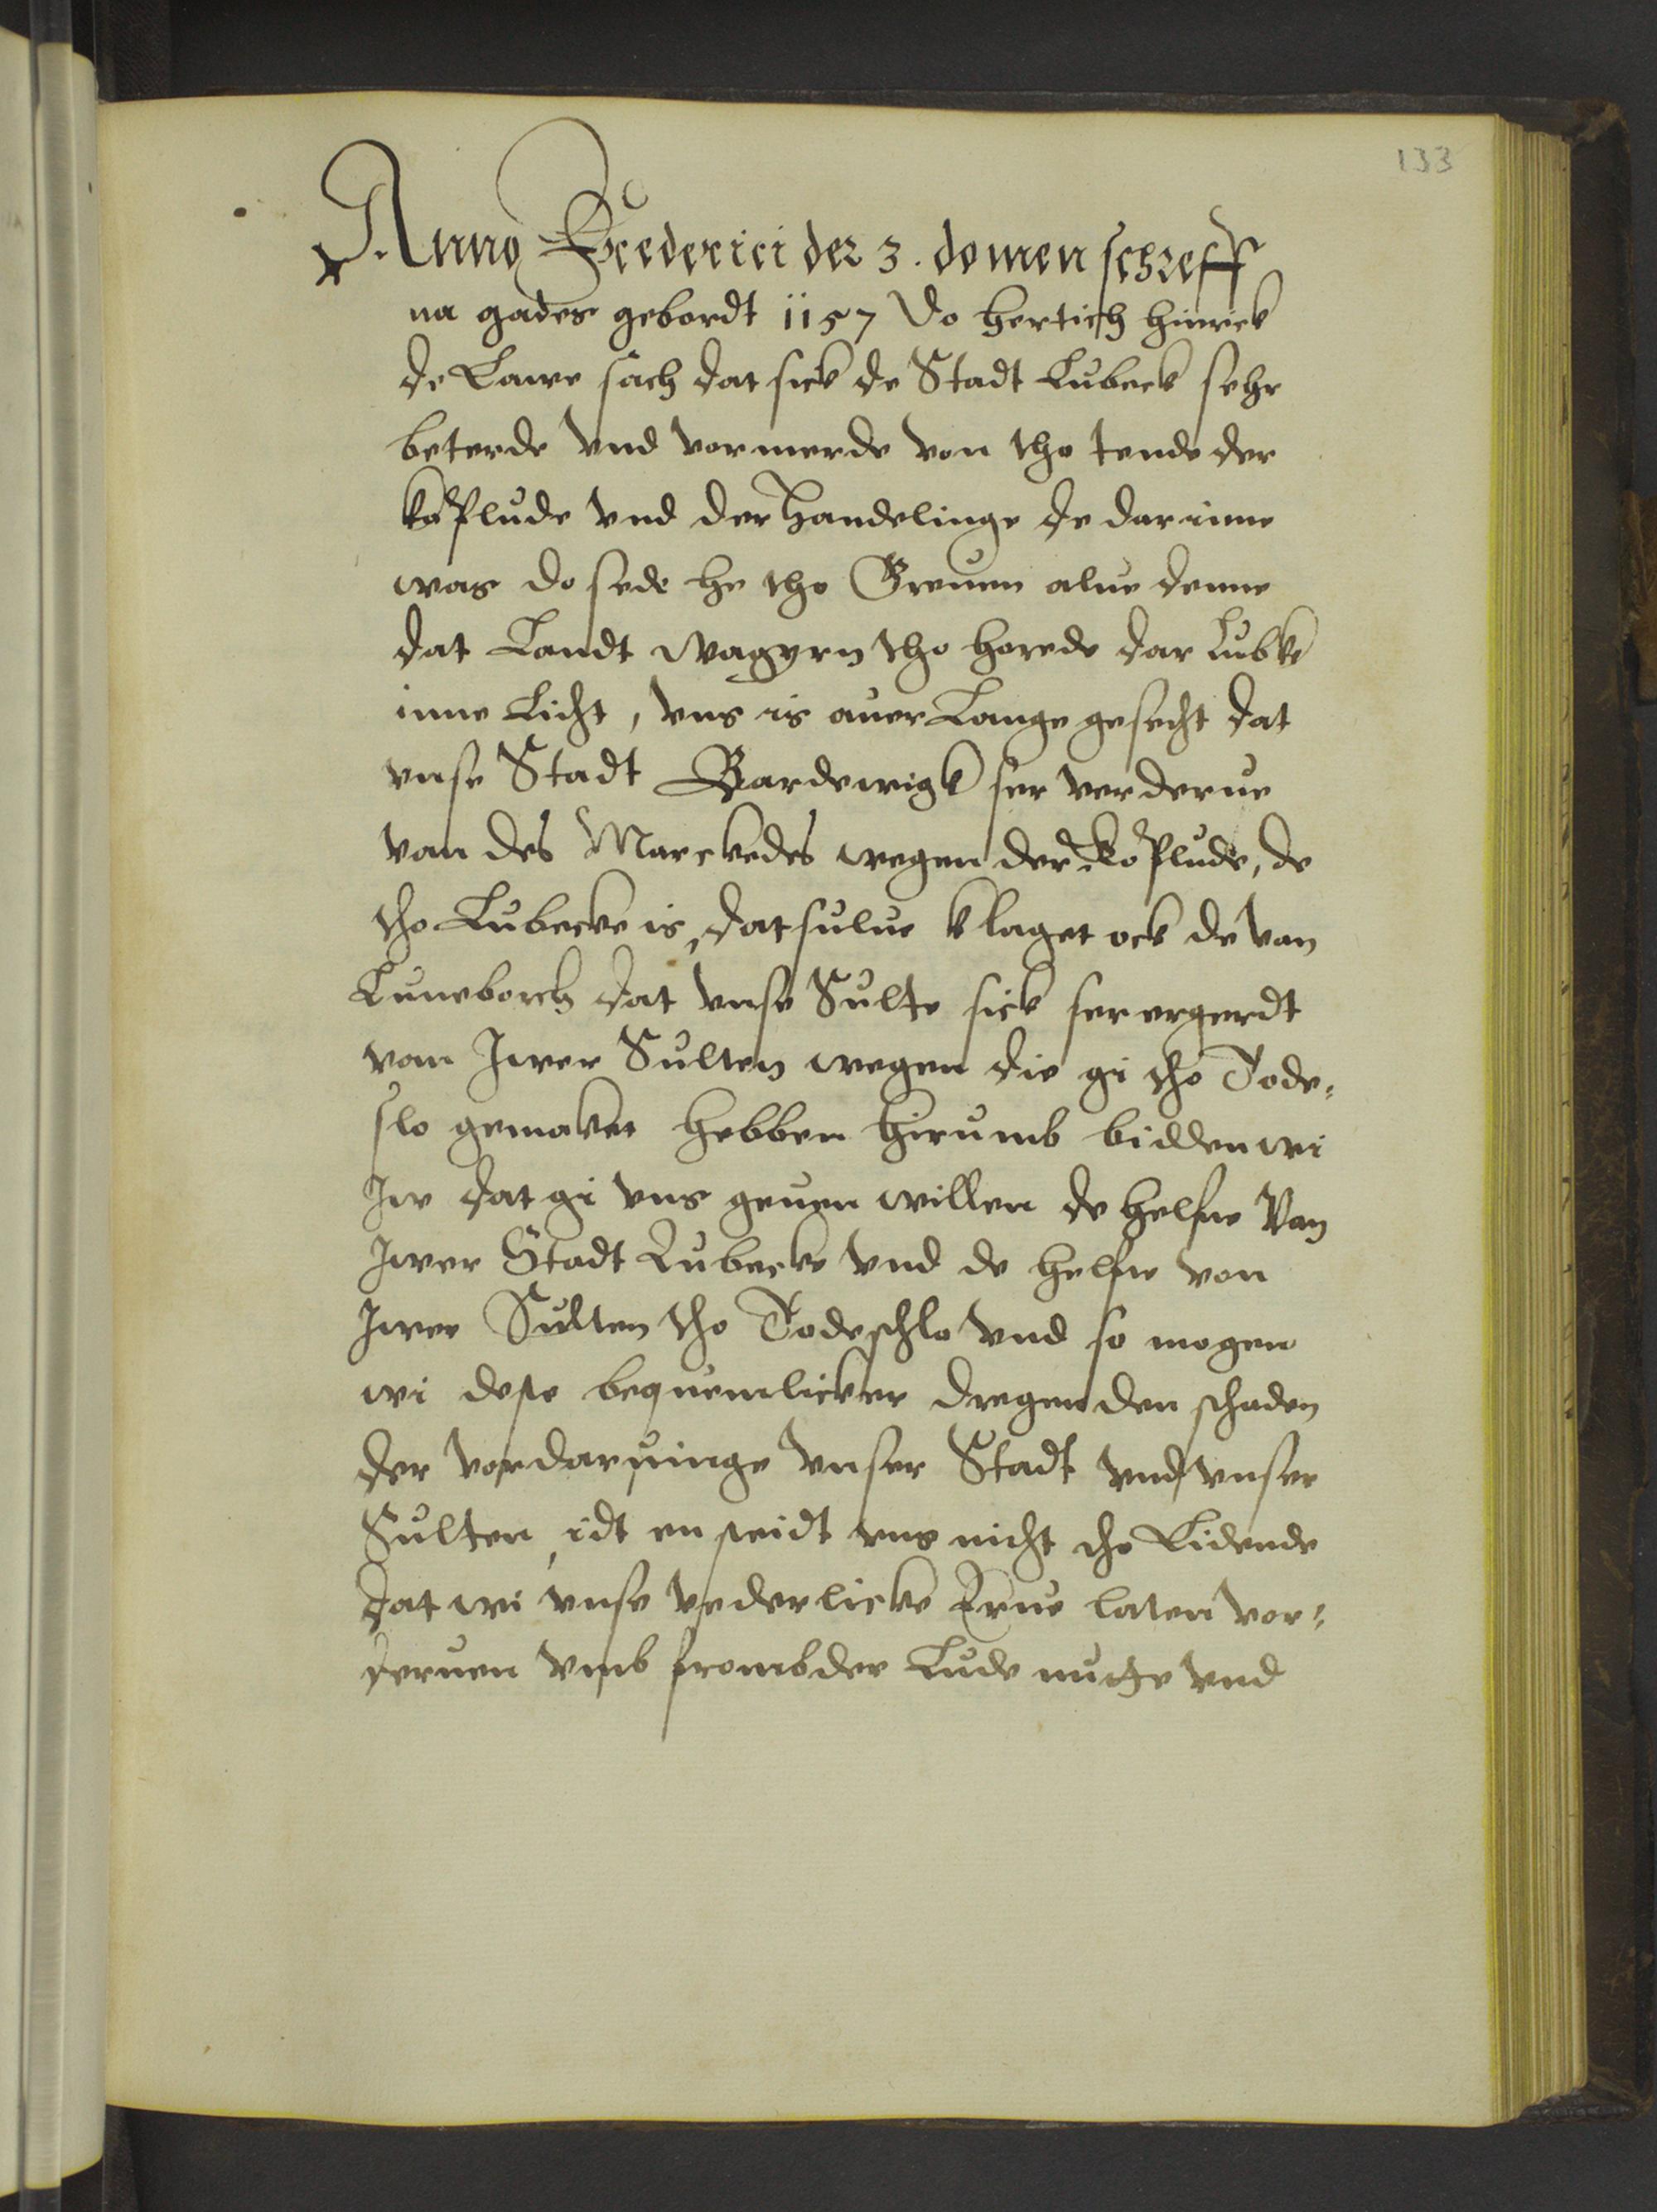 133
Anno Frederici der 3. do men schreff
na gades gebordt 1157 Do hertich Hinrick
de Lawe sach dat sick de Stadt Lubeck sehr
beterde vnd vormerde von tho tende der
koplude vnd der Handelinge de dar inne
was do sede he tho Greuen alue deme
dat Landt wagyrn tho horede dar Lubke
inne Licht, vns is auer Lange gesecht dat
vnse Stadt Bardewigk ser verderue
van des Marckedes wegen der Koplude, de
tho Lubecke is, dat sulue klaget ock de van
Luneborch dat vnse Sulte sick ser ergerdt
van Jwer Sulten wegen die gi tho Tode-
slo gemaket hebben hirumb bidden wi
Jw dat gi vns geuen willen de helfte Van
Jwer Stadt Lubecke vnd de helfte von
Jwer Sulten tho Todeschlo vnd so mogen
wi deste bequemlicker dregen den schaden
der vordaruinge vnser Stadt vnd vnser
Sulten, idt en steidt vns nicht tho Lidende
dat wi vnse vederlicke Erue laten vor-
deruen vmb frombder Lude nutte vnd